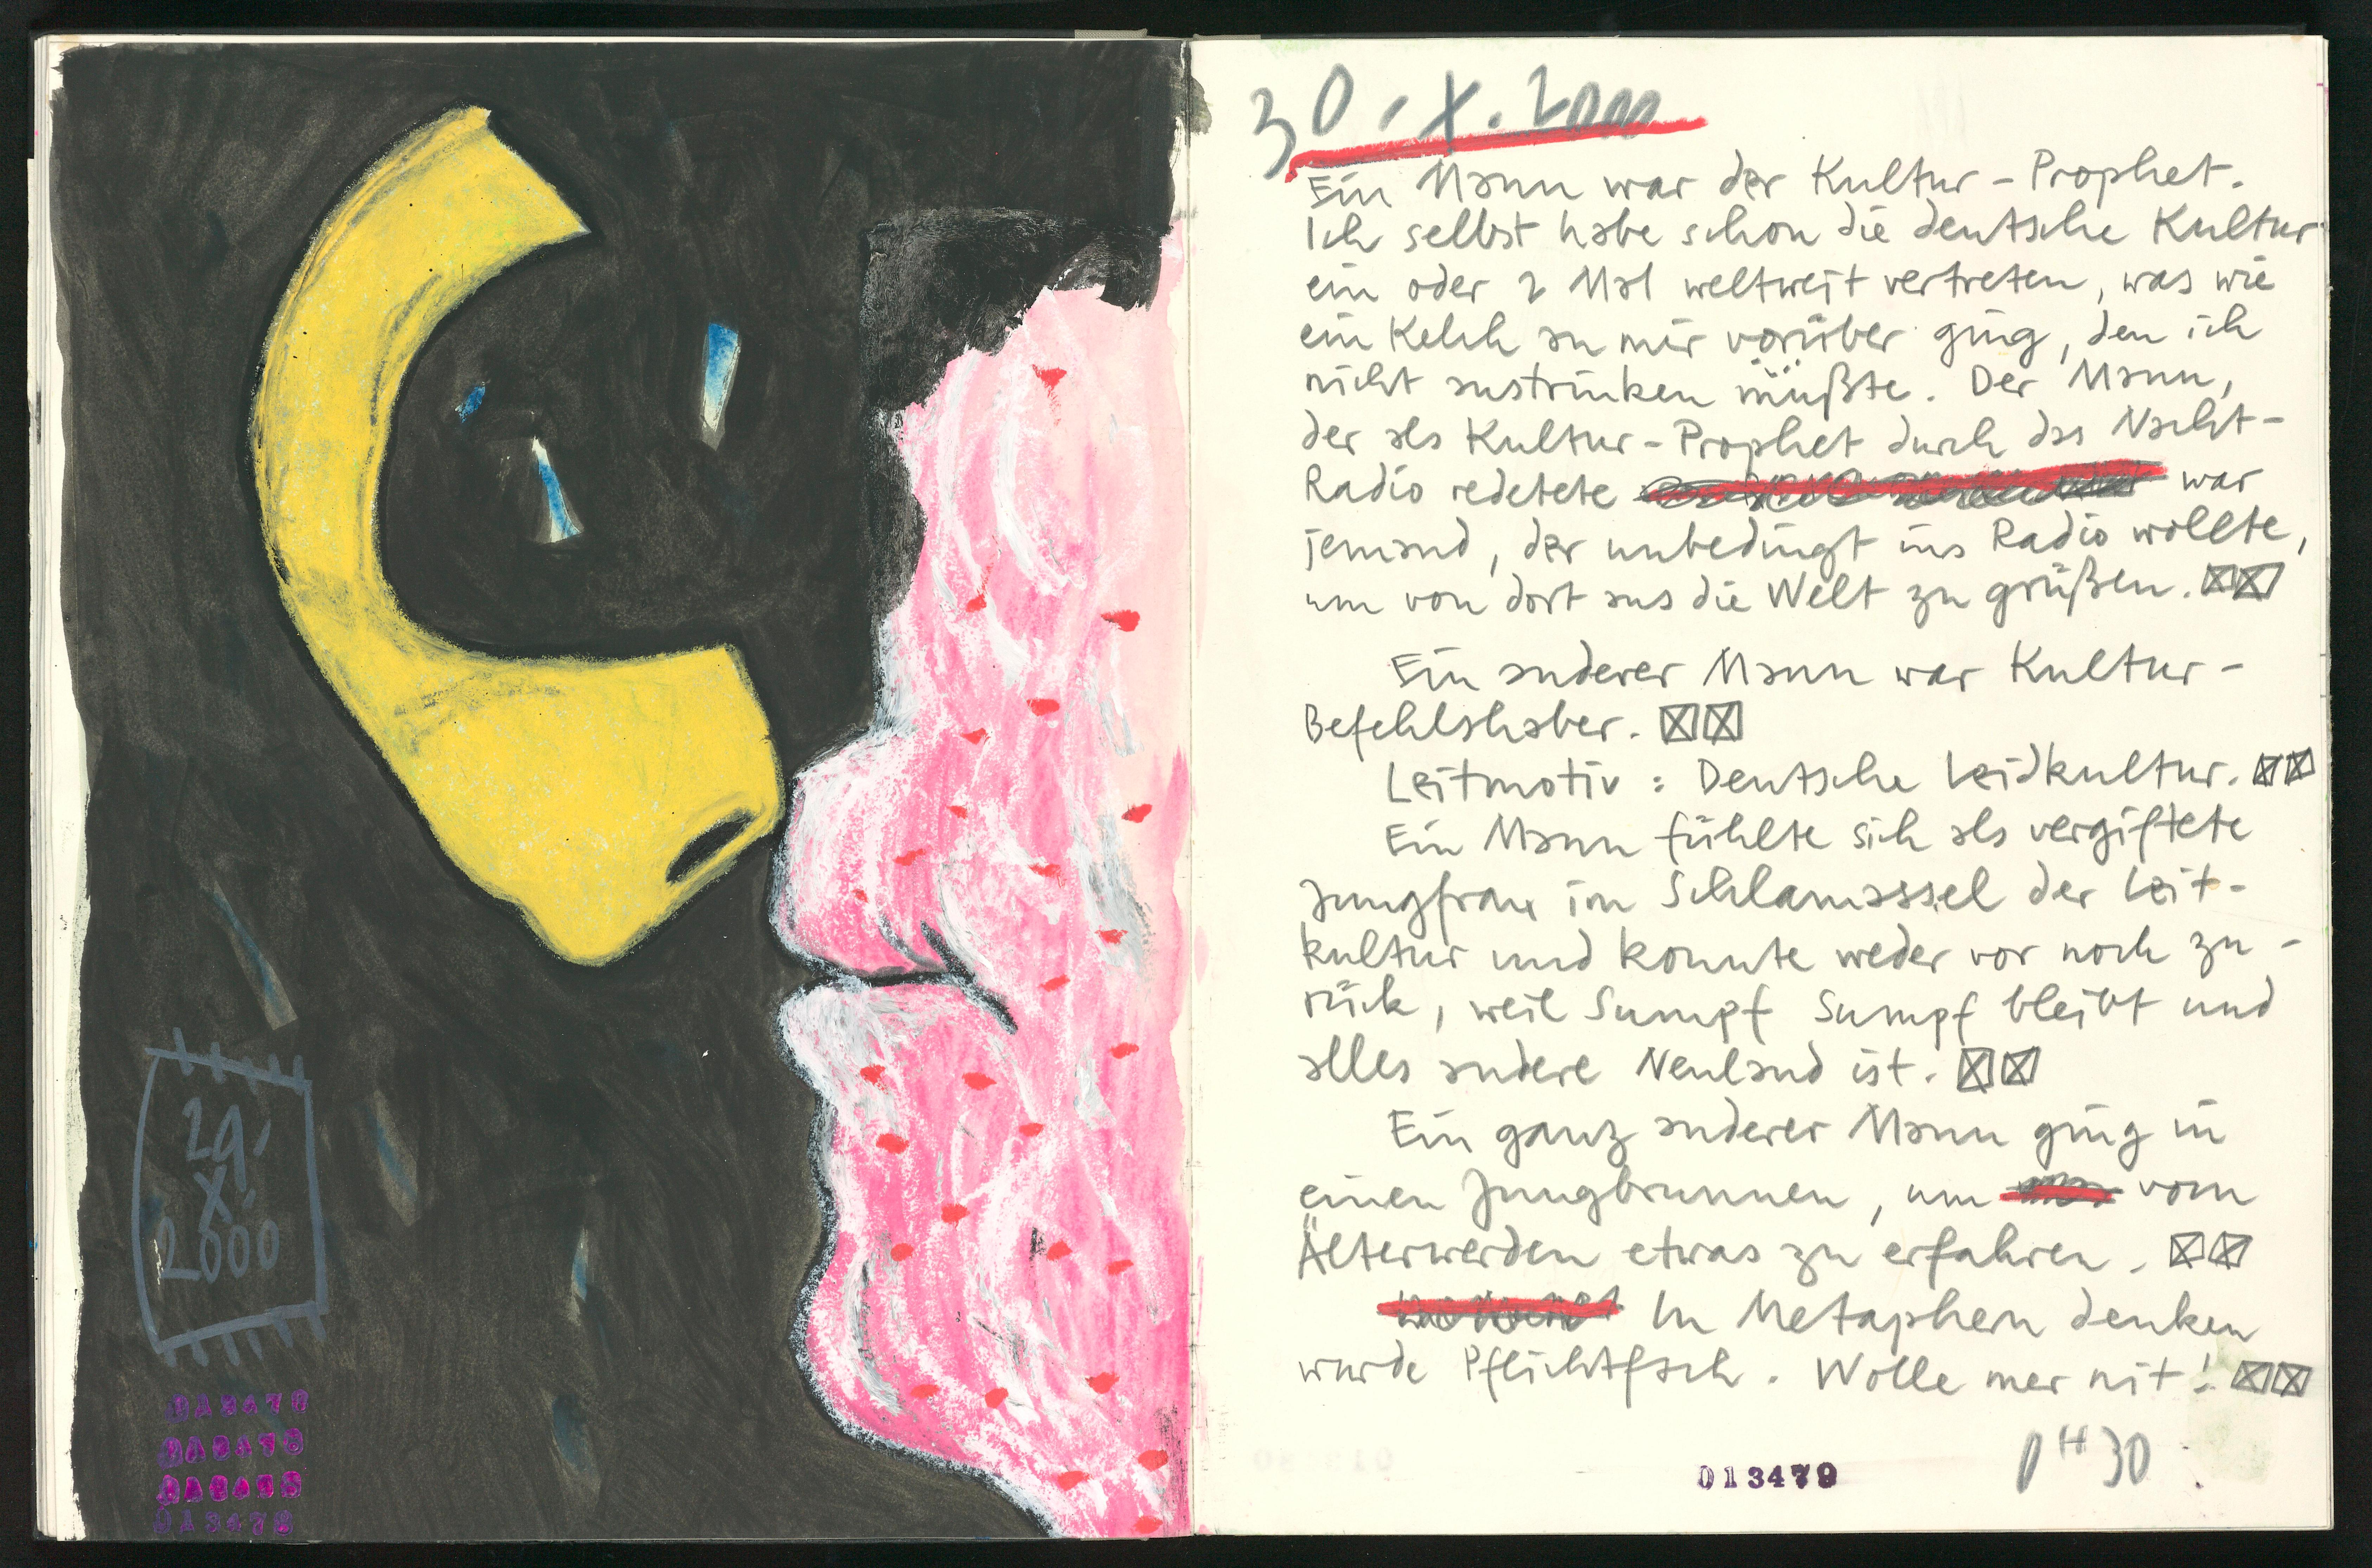 29.
X.
2000
013478
013478
013478
013478
30.X.2000
Ein Mann war der Kultur-Prophet.
Ich selbst habe schon die deutsche Kultur
ein oder 2 Mal weltweit vertreten, was wie
ein Kelch an mir vorüber ging, den ich
nicht austrinken müßte. Der Mann,
der als Kultur-Prophet durch das Nacht-
Radio redetete war
jemand, der unbedingt ins Radio wollte,
um von dort aus die Welt zu grüßen.
Ein anderer Mann war Kultur-
Befehlshaber.
Leitmotiv: Deutsche Leidkultur.
Ein Mann fühlte sich als vergiftete
Jungfrau im Schlamassel der Leit-
kultur und konnte weder vor noch zu-
rück, weil Sumpf Sumpf bleibt und
alles andere Neuland ist.
Ein ganz anderer Mann ging in
einen Jungbrunnen, um vom
Älterwerden etwas zu erfahren.
In Metaphern denken
wurde Pflichtfach. Wolle mer nit!
013479